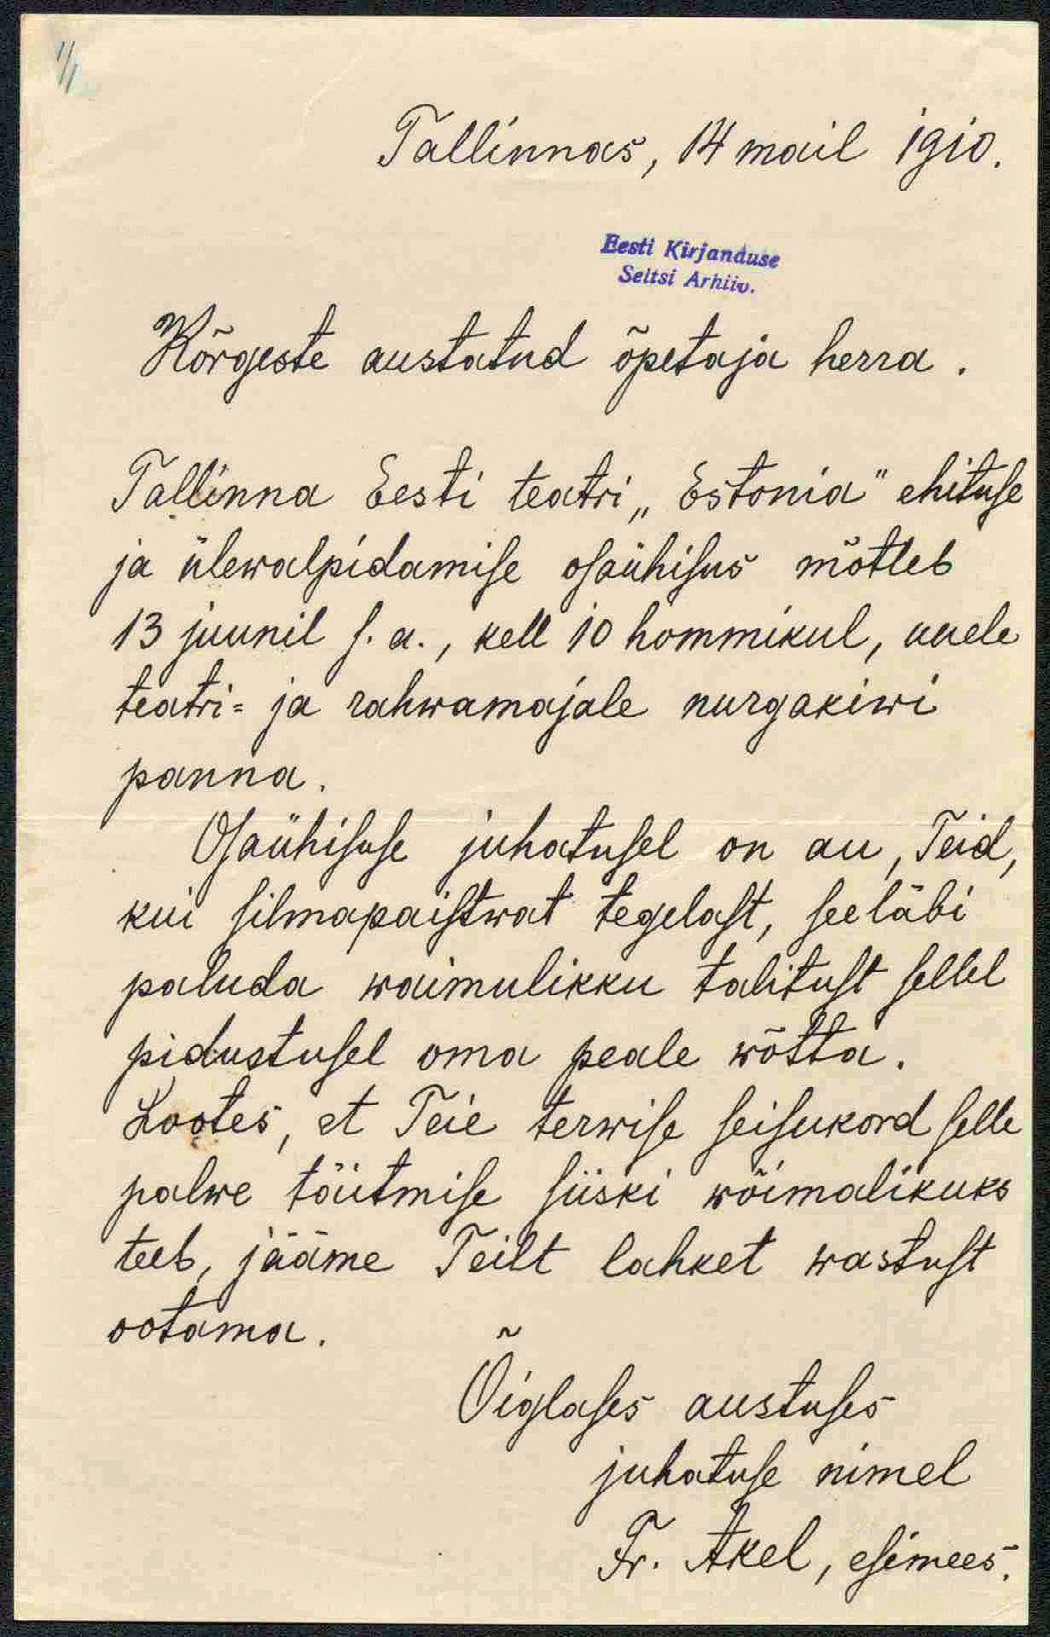 1/1
Tallinnas, 14 mail 1910.
Eesti Kirjanduse
Seltsi Arhiiv.
Kõrgeste austatud õpetaja herra.
Tallinna Eesti teatri „Estonia" ehituſe
ja ülewalpidamiſe oſaühiſus mõtleb
13 juunil ſ. a., kell 10 hommikul, uuele
teatri= ja rahwamajale nurgakiwi
panna.
Oſaühiſuſe juhatuſel on au, Teid,
kui ſilmapaiſtwat tegelaſt, ſeeläbi
paluda waimulikku talituſt ſellel
pidustuſel oma peale wõtta.
Lootes, et Teie terwiſe ſeiſukord ſelle
palwe täitmiſe ſiiski wõimalikuks
teeb, jääme Teilt lahket wastuſt
ootama.
Õiglaſes austuſes
juhatuſe nimel
Fr. Akel, eſimees.